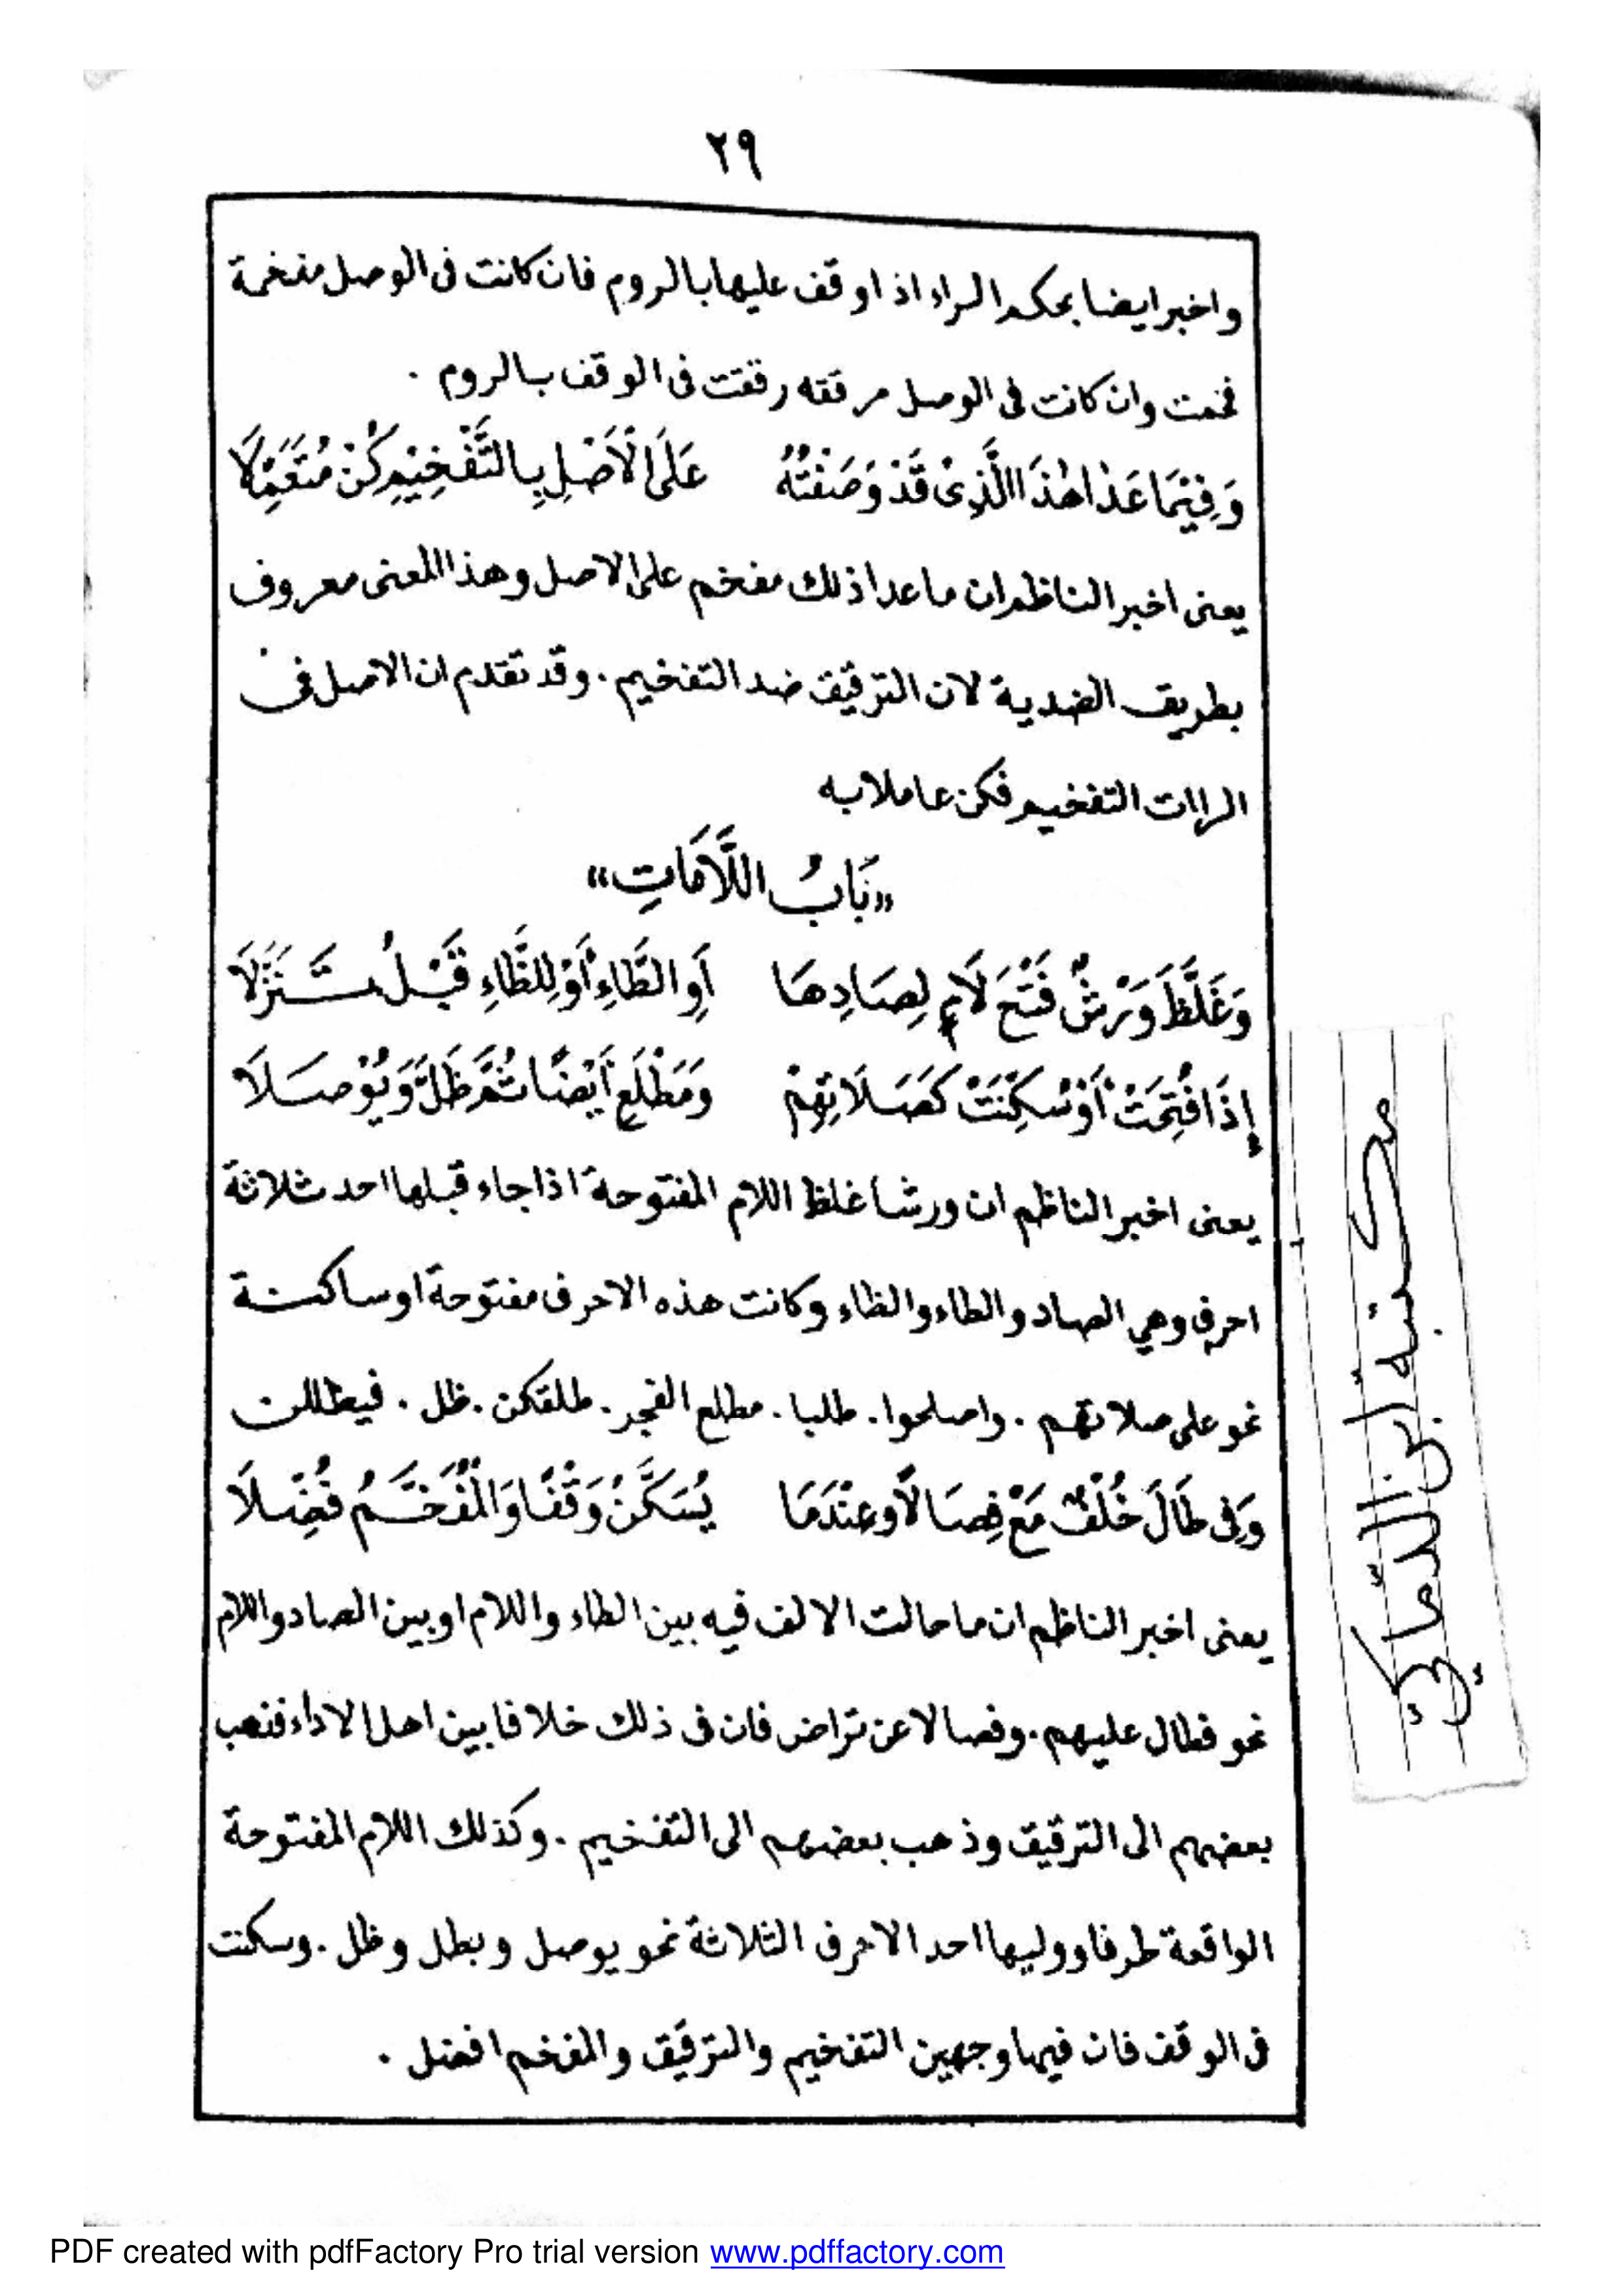 ٢٩
واخبر ايضا بحكم الراء اذا وقف عليها بالروم فان كانت فى الوصل مفخمة
فخمت وان كانت فى الوصل مرققه رققت فى الوقف بالروم .
وَفِيْمَا عَدَا هٰذَا الَّذِىْ قَدْ وَصَفْتُهُ عَلَى الْاَصْلِ بِالتَّفْخِيْمِ كُنْ مُتَعَمِّلَا
يعنى اخبر الناظم ان ما عدا ذلك مفخم على الاصل وهذا المعنى معروف
بطريق الضدية لان الترقيق ضد التفخيم . وقد تقدم ان الاصل فى
الراات التفخيم فكن عاملا به
«بَابُ اللَّامَاتِ»
وَغَلَّظَ وَرْشٌ فَتْحَ لَامٍ لِصَادِهَا اَوِ الطَّاءِ أَوْ لِلظَّاءِ قَبْلُ تَنَزُّلَا
إِذَا فُتِحَتْ أَوْ سُكِّنَتْ كَصَلَاتِهِمْ وَمَطْلَعِ أَيْضًا ثُمَّ ظَلَّ وَيُوْصَلَا
يعنى اخبر الناظم ان ورشا غلظ اللام المفتوحة اذا جاء قبلها احد ثلاثة
احرف وهي الصاد والطاء والظاء وكانت هذه الاحرف مفتوحة او ساكنة
نحو على صلاتهم . واصلحوا . طلبا . مطلع الفجر . طلقكن . ظل . فيظللن
وَفِى طَالَ خُلْفٌ مَعْ فِصَالًا وَعِنْدَمَا يُسَكَّنُ وَقْفًا وَالْمُفَخَّمُ فُضِّلَا
يعنى اخبر الناظم ان ما حالت الالف فيه بين الطاء واللام او بين الصاد واللام
نحو فطال عليهم . وفصالا عن تراض فان فى ذلك خلافا بين اهل الاداء فذهب
بعضهم الى الترقيق وذهب بعضهم الى التفخيم . وكذلك اللام المفتوحة
الواقعة طرفا ووليها احد الاحرف الثلاثة نحو يوصل وبطل وظل . وسكنت
فى الوقف فان فيها وجهين التفخيم والترقيق والمفخم افضل .
مكتبة ابن الدّماكي
PDF created with pdfFactory Pro trial version www.pdffactory.com